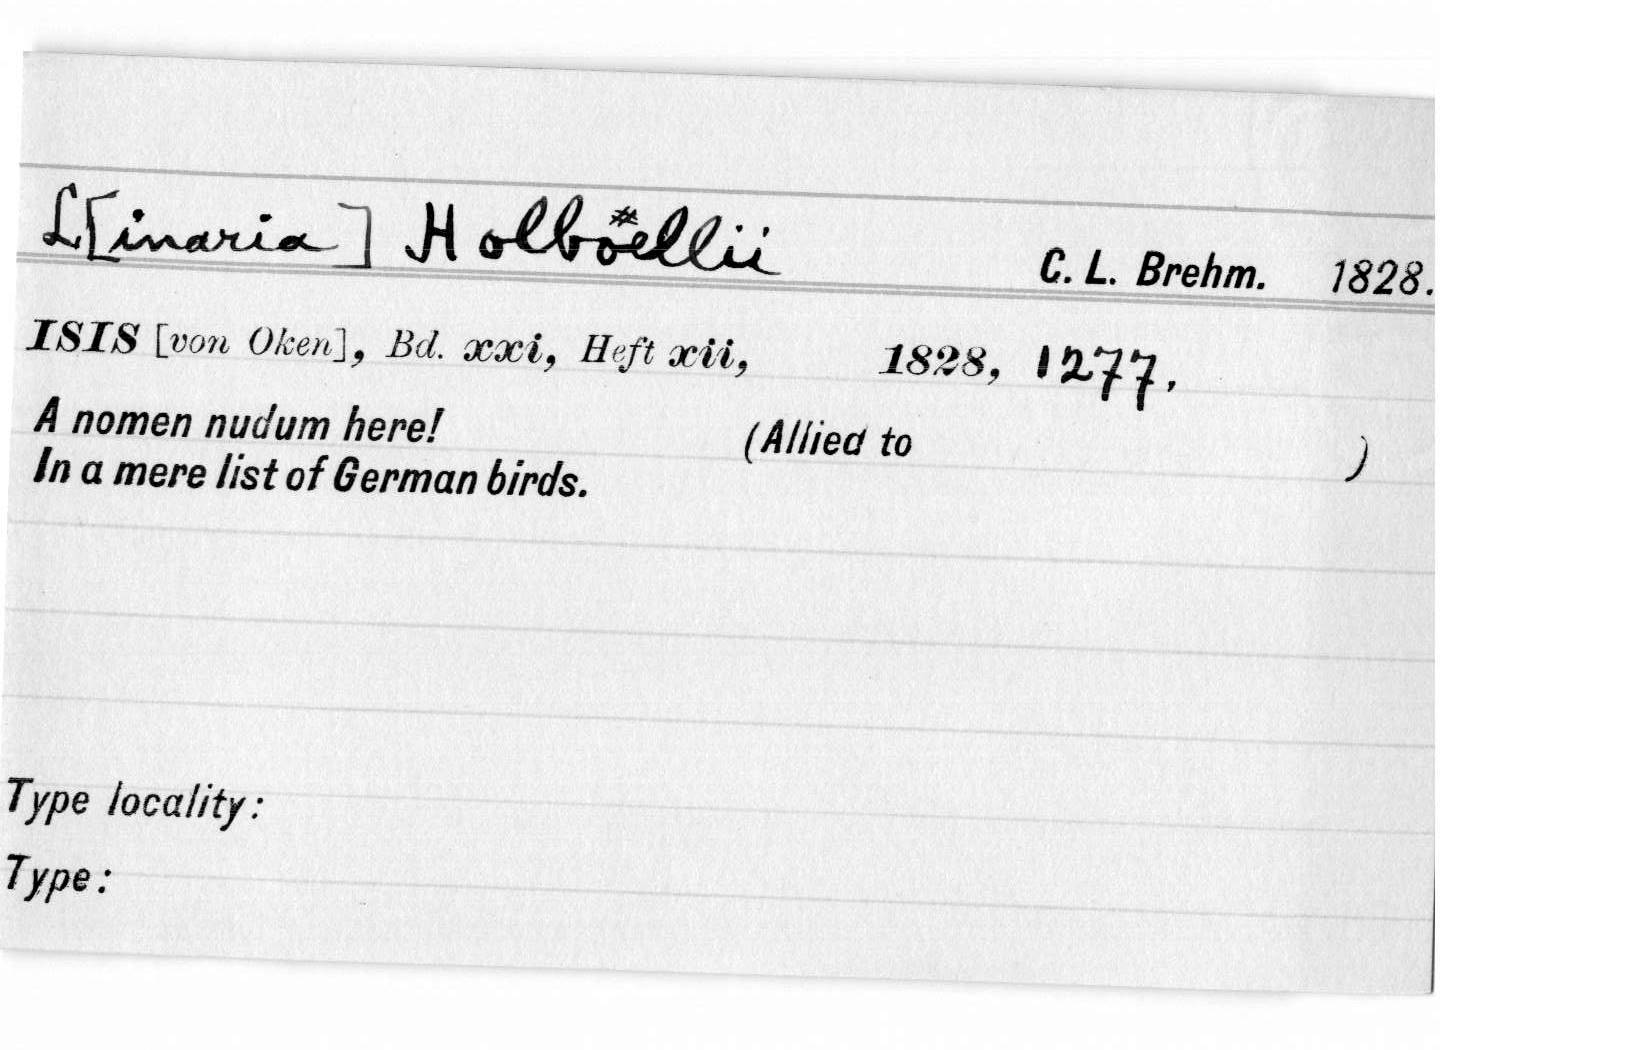 L[inaria] Holböellii C. L. Brehm. 1828.
ISIS [von Oken], Bd. xxi, Heft xii, 1828, 1277.
A nomen nudum here! (Allied to )
In a mere list of German birds.
Type locality:
Type: